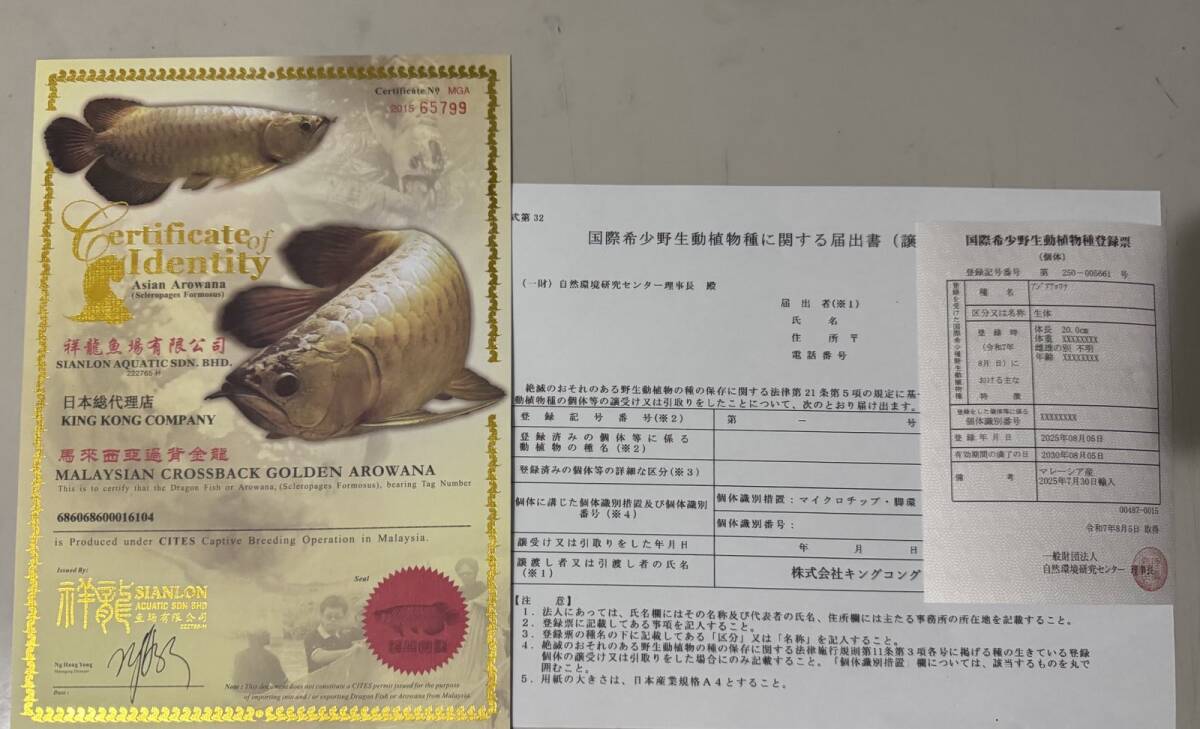 Certificate Nº MGA
2015 65799
Certificate of
Identity
Asian Arowana
(Scleropages Formosus)
祥龍魚場有限公司
SIANLON AQUATIC SDN. BHD.
222765-H
日本総代理店
KING KONG COMPANY
馬來西亞過背金龍
MALAYSIAN CROSSBACK GOLDEN AROWANA
This is to certify that the Dragon Fish or Arowana, (Scleropages Formosus), bearing Tag Number
686068600016104
is Produced under CITES Captive Breeding Operation in Malaysia.
Issued By:
Seal
祥龍 SIANLON
AQUATIC SDN BHD
222765-H
Ng Hong Yong
Managing Director
Date :
Note : This document does not constitute a CITES permit issued for the purpose
of importing into and / or exporting Dragon Fish or Arowana from Malaysia.
式第32
国際希少野生動植物種に関する届出書（譲
（一財）自然環境研究センター理事長 殿
届 出 者(※1)
氏 名
住 所 〒
電 話 番 号
絶滅のおそれのある野生動植物の種の保存に関する法律第21条第5項の規定に基
動植物種の個体等の譲受け又は引取りをしたことについて、次のとおり届け出ます。
登 録 記 号 番 号(※2) 第 － 号
登録済みの個体等に係る
動植物の種名（※2）
登録済みの個体等の詳細な区分(※3)
個体に講じた個体識別措置及び個体識別
番号（※4） 個体識別措置：マイクロチップ・脚環
個体識別番号：
譲受け又は引取りをした年月日 年 月 日
譲渡し者又は引渡し者の氏名
（※1） 株式会社キングコング
【注 意】
1．法人にあっては、氏名欄にはその名称及び代表者の氏名、住所欄には主たる事務所の所在地を記載すること。
2．登録票に記載してある事項を記入すること。
3．登録票の種名の下に記載してある「区分」又は「名称」を記入すること。
4．絶滅のおそれのある野生動植物の種の保存に関する法律施行規則第11条第3項各号に掲げる種の生きている登録
個体の譲受け又は引取りをした場合にのみ記載すること。「個体識別措置 欄については、該当するものを丸で
囲むこと。
5．用紙の大きさは、日本産業規格A4とすること。
国際希少野生動植物種登録票
（個体）
登録記号番号 第 250-005661 号
登録を受けた国際希少野生動植物種
種 名 アジアアロワナ
区分又は名称 生体
登 録 時
（令和7年
8月 日）に
おける主な
特 徴
体長 20.0cm
体重 XXXXXXXX
雌雄の別 不明
年齢 XXXXXXXX
登録をした個体等に係る
個体識別番号 XXXXXXXX
登録年月日 2025年08月05日
有効期間の満了の日 2030年08月05日
備 考 マレーシア産
2025年7月30日輸入
00487-0015
令和7年8月5日 取得
一般財団法人
自然環境研究センター 理事長